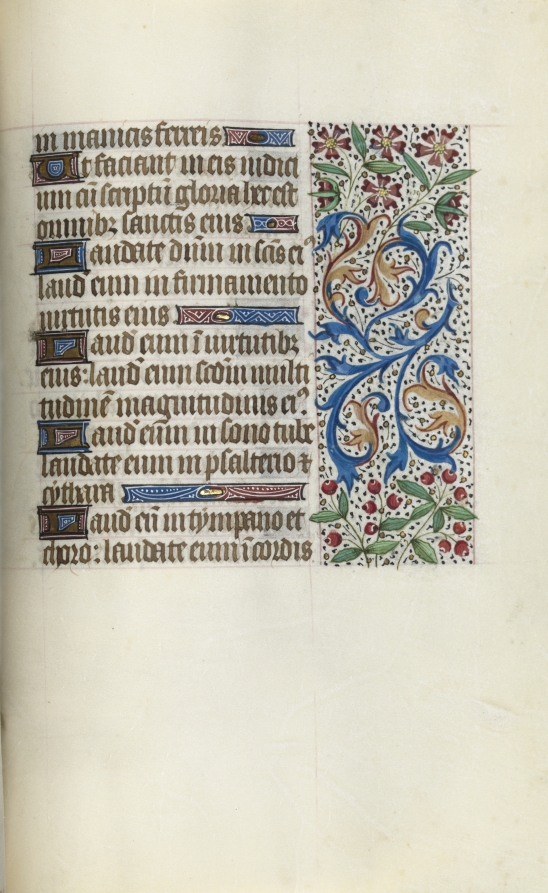 in manicis ferreis
Ut faciant in eis iudici
um cū scriptū gloria hec est
omnibꝫ sanctis eius
Laudate dūm in scīs eiꝰ
laud eum in firmamento
uirtutis eius
Laud eum ī uirtutibꝫ
eius: laud eum scōm multi
tudinē magnitudinis eiꝰ
Laud eūm in sono tube
laudate eum in psalterio ⁊
cythara
Laud eū in tympano et
choro: laudate eum ī cordis